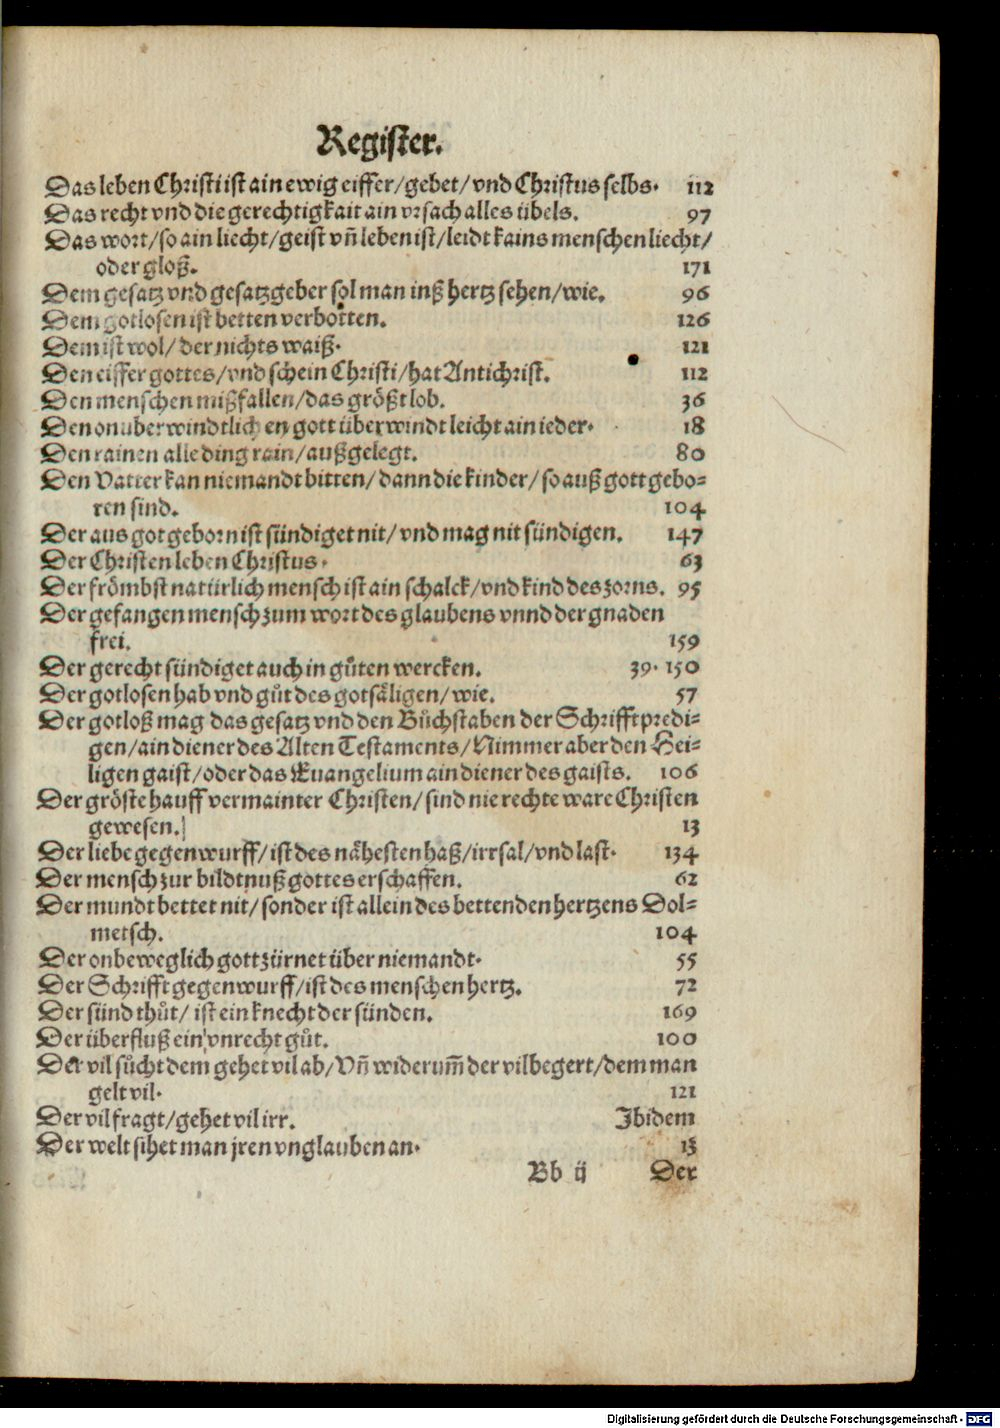 Register.
Das leben Christi ist ain ewig eiffer/gebet/vnd Christus selbs. 112
Das recht vnd die gerechtigkait ain vrsach alles übels. 97
Das wort/so ain liecht/geist vn̄ leben ist/leidt kains menschen liecht/
oder gloß. 171
Dem gesatz vnd gesatzgeber sol man inß hertz sehen/wie. 96
Dem gotlosen ist betten verbotten. 126
Dem ist wol/der nichts waiß. 121
Den eiffer gottes/vnd schein Christi/hat Antichrist. 112
Den menschen mißfallen/das größt lob. 36
Den onuberwindtlichen gott überwindt leicht ain ieder. 18
Den rainen alle ding rain/außgelegt. 80
Den Vatter kan niemandt bitten/dann die kinder/so auß gott gebo-
ren sind. 104
Der aus got geborn ist sündiget nit/vnd mag nit sündigen. 147
Der Christen leben Christus. 63
Der frömbst natürlich mensch ist ain schalck/vnd kind des zorns. 95
Der gefangen mensch zum wort des glaubens vnnd der gnaden
frei. 159
Der gerecht sündiget auch in gůten wercken. 39. 150
Der gotlosen hab vnd gůt des gotsäligen/wie. 57
Der gotloß mag das gesatz vnd den Bůchstaben der Schrifft predi-
gen/ain diener des Alten Testaments/Nimmer aber den Hei-
ligen gaist/oder das Euangelium ain diener des gaists. 106
Der gröste hauff vermainter Christen/sind nie rechte ware Christen
gewesen. 13
Der liebe gegenwurff/ist des nähesten haß/irrsal/vnd last. 134
Der mensch zur bildtnuß gottes erschaffen. 62
Der mundt bettet nit/sonder ist allein des bettenden hertzens Dol-
metsch. 104
Der onbeweglich gott zürnet über niemandt. 55
Der Schrifft gegenwurff/ist des menschen hertz. 72
Der sünd thůt/ist ein knecht der sünden. 169
Der überfluß ein vnrecht gůt. 100
Der vil sůcht dem gehet vil ab/Vn̄ widerum̄ der vil begert/dem man
gelt vil. 121
Der vil fragt/gehet vil irr. Ibidem
Der welt sihet man jren vnglauben an. 13
Bb ij Der
Digitalisierung gefördert durch die Deutsche Forschungsgemeinschaft - DFG